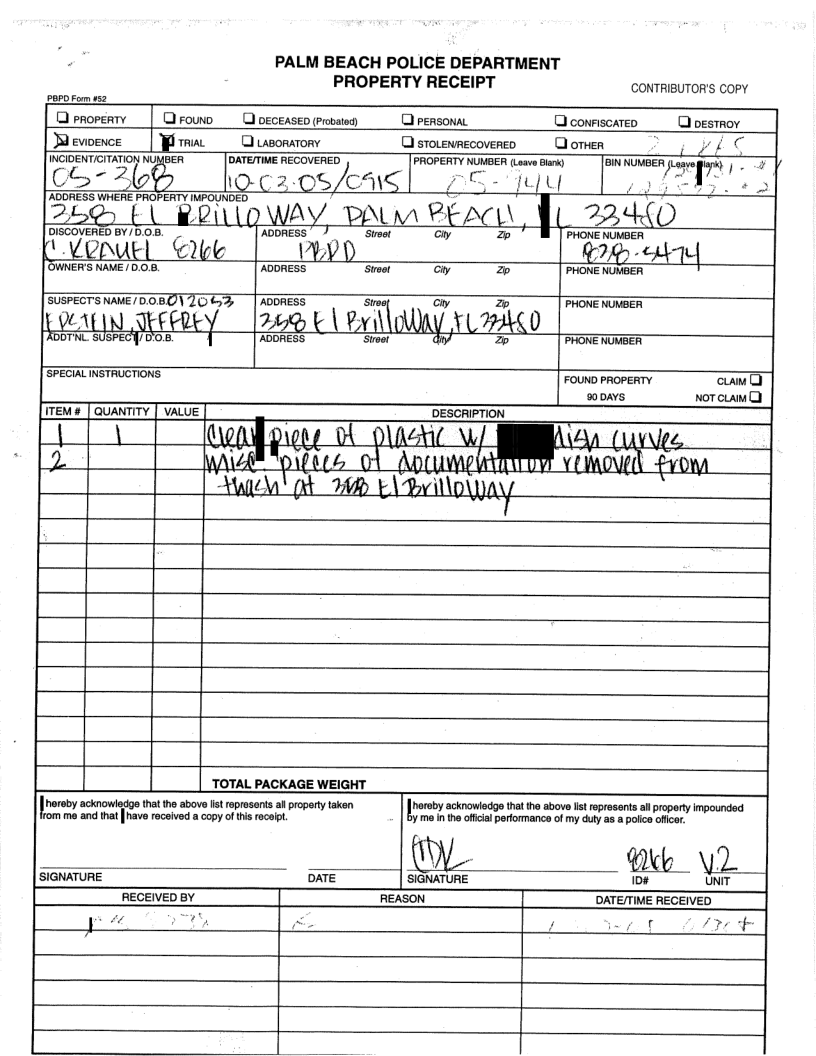 PALM BEACH POLICE DEPARTMENT
PROPERTY RECEIPT
CONTRIBUTOR'S COPY
PBPD Form #52
PROPERTY FOUND DECEASED (Probated) PERSONAL CONFISCATED DESTROY
EVIDENCE TRIAL LABORATORY STOLEN/RECOVERED OTHER
INCIDENT/CITATION NUMBER DATE/TIME RECOVERED PROPERTY NUMBER (Leave Blank) BIN NUMBER (Leave Blank)
05-368 10-03-05/0915 05-944
ADDRESS WHERE PROPERTY IMPOUNDED
358 EL BRILLO WAY, PALM BEACH, L 33480
DISCOVERED BY / D.O.B. ADDRESS Street City Zip PHONE NUMBER
C. KRAUEL 8266 PBPD 838-5474
OWNER'S NAME / D.O.B. ADDRESS Street City Zip PHONE NUMBER
SUSPECT'S NAME / D.O.B. 012053 ADDRESS Street City Zip PHONE NUMBER
EPSTEIN, JEFFREY 358 El Brillo Way, FL 33480
ADDT'NL. SUSPECT / D.O.B. ADDRESS Street City Zip PHONE NUMBER
SPECIAL INSTRUCTIONS FOUND PROPERTY CLAIM
90 DAYS NOT CLAIM
ITEM # QUANTITY VALUE DESCRIPTION
1 1 Clear piece of plastic w/ dish curves
2 misc. pieces of documentation removed from
trash at 358 El Brillo Way
TOTAL PACKAGE WEIGHT
hereby acknowledge that the above list represents all property taken
from me and that have received a copy of this receipt.
hereby acknowledge that the above list represents all property impounded
by me in the official performance of my duty as a police officer.
8266 V.2
SIGNATURE DATE SIGNATURE ID# UNIT
RECEIVED BY REASON DATE/TIME RECEIVED